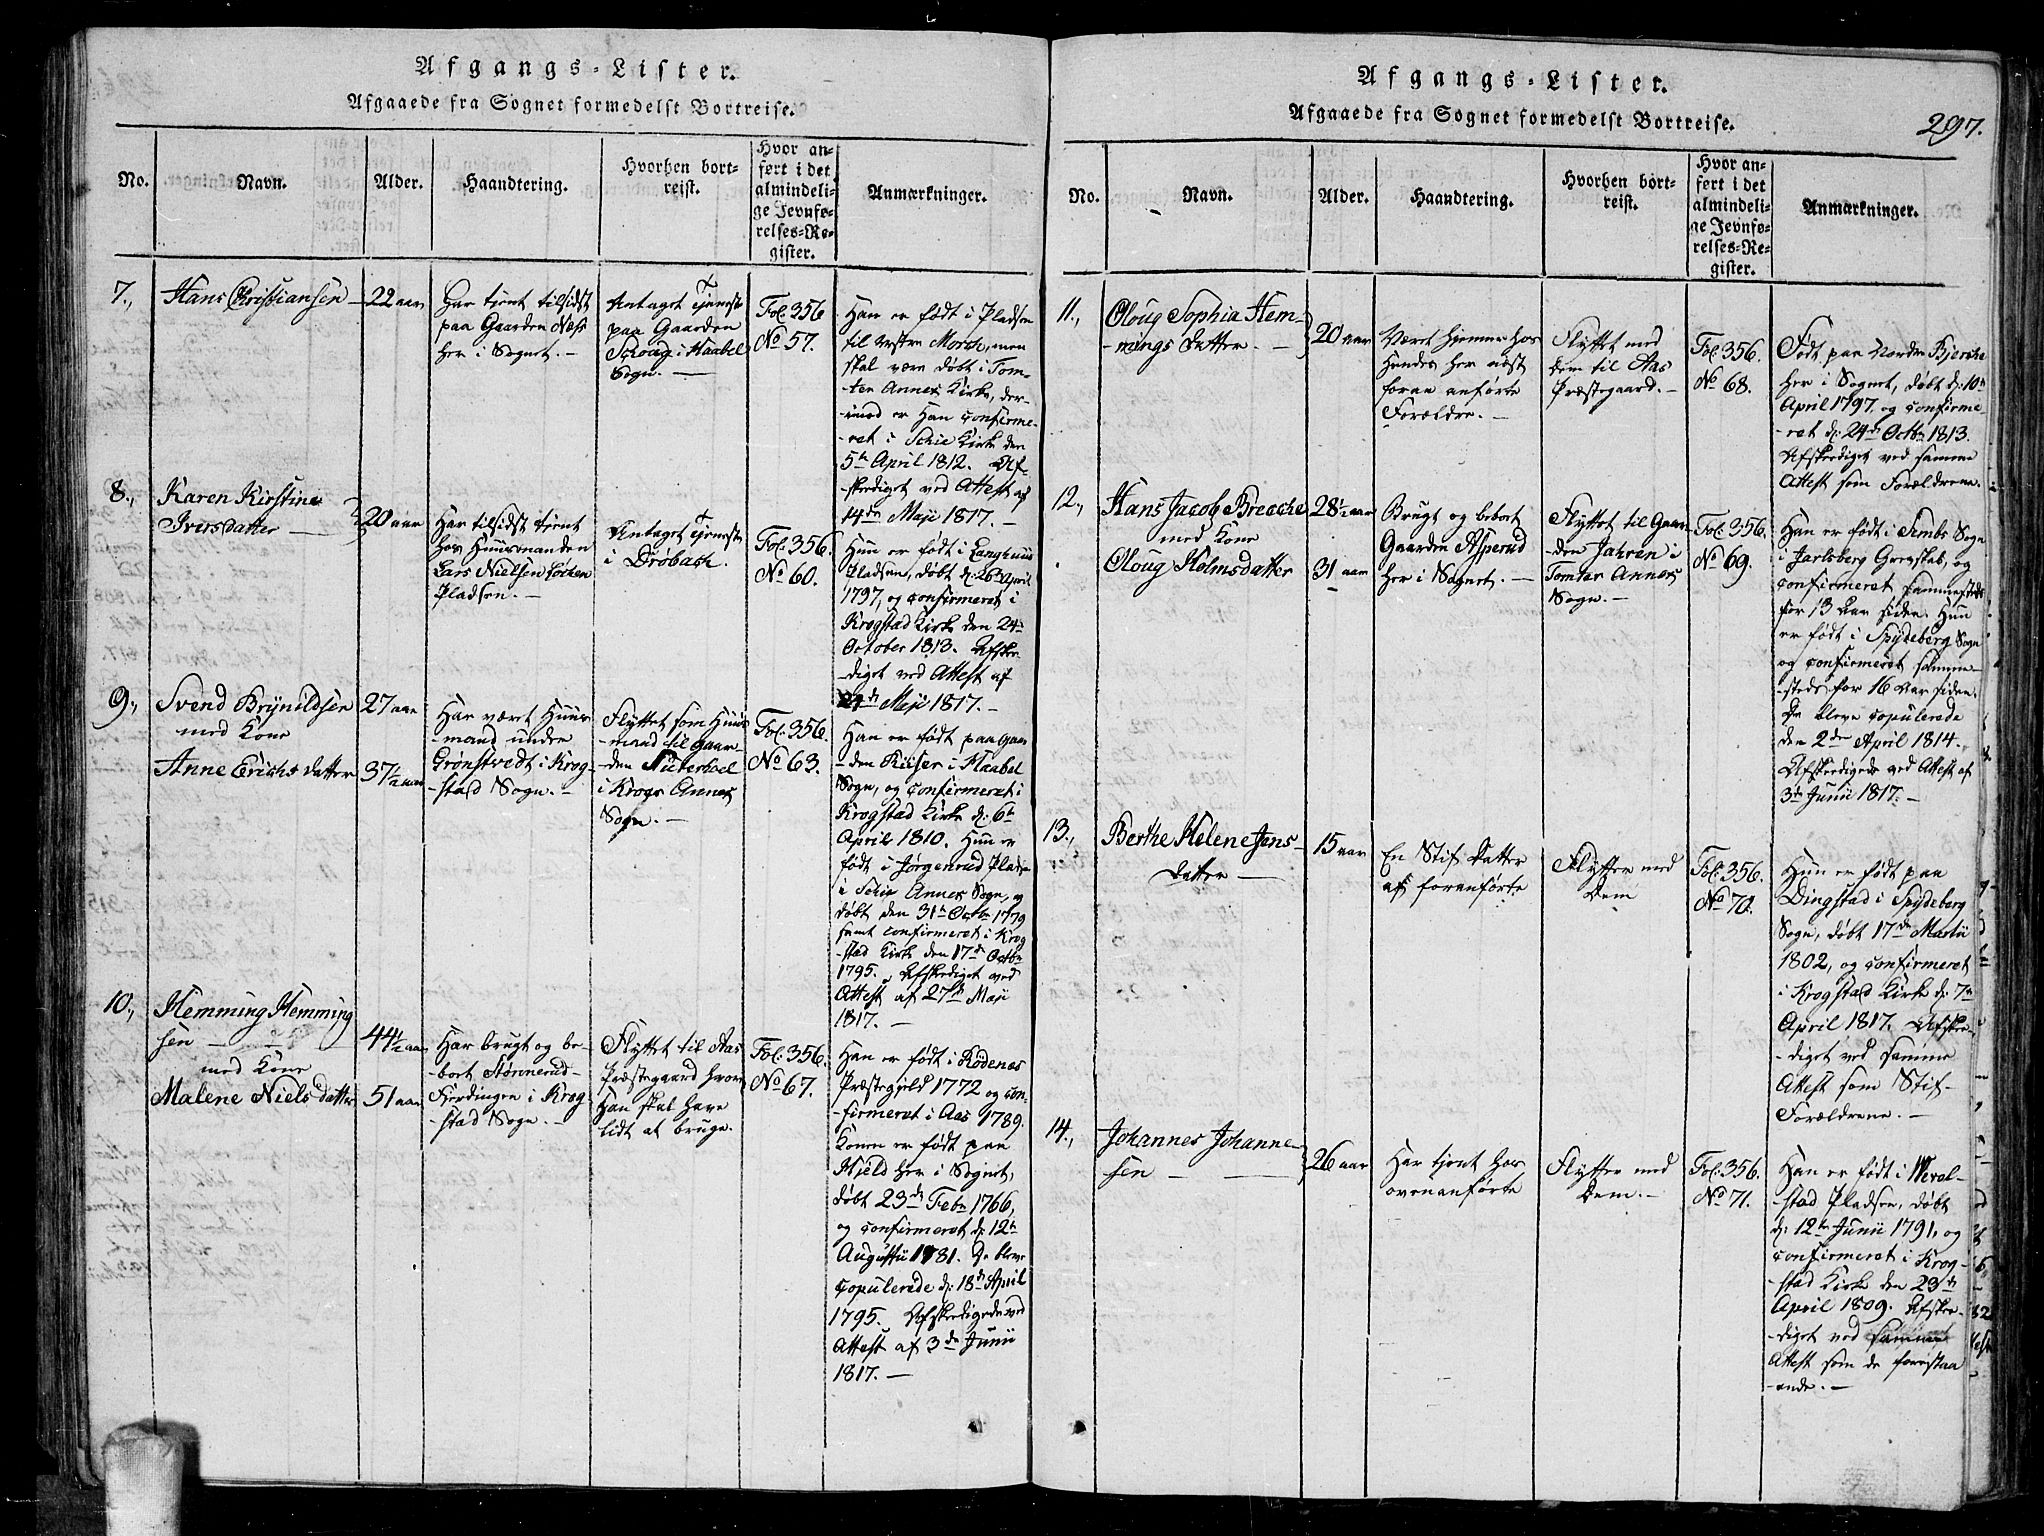 Afgangs-Lister.
Afgaaede fra Sognet formedelst Bortreise.
No.
Navn.
Alder.
Haandtering.
Hvorhen bort-
reist.
Hvor an-
ført i det
almindeli-
ge Jevnfø-
relses-Re-
gister.
Anmærkninger.
7.,
Hans Christiansen
22 aar
Har tjent tilsidst
paa Gaarden Næss
her i Sognet. —
Antaget Tjeneste
paa Gaarden
Schoug i Haabel
Sogn. —
Fol. 356
No 57.
Han er født i Pladsen
til Vestre Morch, men
skal være døbt i Tom-
ter Annex Kirke, der-
imod er Han confirme-
-ret i Schie Kirke den
5te April 1812. Af-
skediget ved Attest af
14de Maji 1817. —
8.,
Karen Kirstine
Iversdatter —
20 aar
Har tilsidst tjent
hos Huusmanden
Lars Nielsen Løken
Pladsen. —
Antaget Tjeneste
i Drøbach.
Fol. 356.
No 60.
Hun er født i Langhuus
Pladsen, døbt d: 26de April
1797, og confirmeret i
Krogstad Kirke den 24de
October 1813. Afske-
-diget ved Attest af
24de Maji 1817. —
9.,
Svend Brynildsen
med Kone
Anne Erichsdatter
27 aar
37½ aar
Har været Huus-
-mand under
Grønstvedt i Krog-
-stad Sogn. —
Flyttet som Huus
-mand til Gaar-
-den
i Krogs Annex
Sogn. —
Fol. 356.
No 63.
Han er født paa Gaar
-den Riiser i Haabel
Sogn, og confirmeret i
Krogstad Kirke d: 6te
April 1810. Hun er
født i Jørgenrud Plads
i Schie Annex Sogn, og
døbt den 31te Octbr 1779
samt confirmeret i Krog
-stad Kirke den 17de Octbr
1795. Afskediget ved
Attest af 27de Maji
1817. —
10.,
Hemming Hemming
sen —
med Kone
Malene Nielsdatter
44½ aar
51 aar
Har brugt og be-
-boet Stønnerud-
Fjerdingen i Krog
-stad Sogn. —
Flyttet til Aas
Præstegaard hvor
Han skal have
lidt at bruge.
Fol. 356.
No 67.
Han er født i Rødenæs
Præstegjeld 1772 og con-
-firmeret i Aas 1789.
Konen er født paa
Hjeld her i Sognet,
døbt 23de Febr 1766,
og confirmeret d: 12te
Augustii 1781. De bleve
copulerede d: 18de April
1795. Afskedigede ved
Attest af 3de Junii
1817. —
Afgangs-Lister.
Afgaaede fra Sognet formedelst Bortreise.
297.
No.
Navn.
Alder.
Haandtering.
Hvorhen bort-
reist.
Hvor an-
ført i det
almindeli-
ge Jevnfø-
relses-Re-
gister.
Anmærkninger.
11.,
Oloug Sophia Hem-
-mings Datter —
20 aar
Været hjemme hos
Hendes her næst
foran anførte
Forældre. —
Flyttet med
dem til Aas
Præstegaard. —
Fol. 356.
No 68.
Født paa Nordre Bjerche
her i Sognet, døbt d: 10de
April 1797. og confirme
-ret d: 24de Octbr 1813.
Afskediget ved samme
Attest som Forældrene.
12.,
Hans Jacob Breeche
med Kone
Oloug Holmsdatter
28½ aar
31 aar
Brugt og beboet
Gaarden Asperud
her i Sognet. —
Flyttet til Gaar-
-den Jahren i
Tomter Annex
Sogn. —
Fol. 356.
No 69.
Han er født i Sembs Sogn
i Jarlsberg Grevskab, og
confirmeret sammesteds
for 13 Aar siden. Hun
er født i Spydeberg Sogn
og confirmeret samme-
-steds for 16 Aar siden.
De bleve copulerede
den 2den April 1814.
Afskedigede ved Attest af
3de Junii 1817. —
13.,
Berthe Helene Jens-
Datter —
15 aar
En Stif Datter
af foranførte
Flytter med
Dem
Fol. 356.
No 70.
Hun er født paa
Dingstad i Spydeberg
Sogn, døbt 17de Martii
1802, og confirmeret
i Krogstad Kirke d: 7de
April 1817. Afske-
-diget ved samme
Attest som Stif-
Forældrene. —
14.,
Johannes Johanne-
sen —
26 aar
Har tjent hos
ovenanførte
Flytter med
Dem. —
Fol. 356.
No 71.
Han er født i Werel-
-stad Pladsen, døbt
d: 12te Junii 1791, og
confirmeret i Krog-
-stad Kirke den 23de
April 1809. Afske-
-diget ved samme
Attest som de forestaa
-ende. —